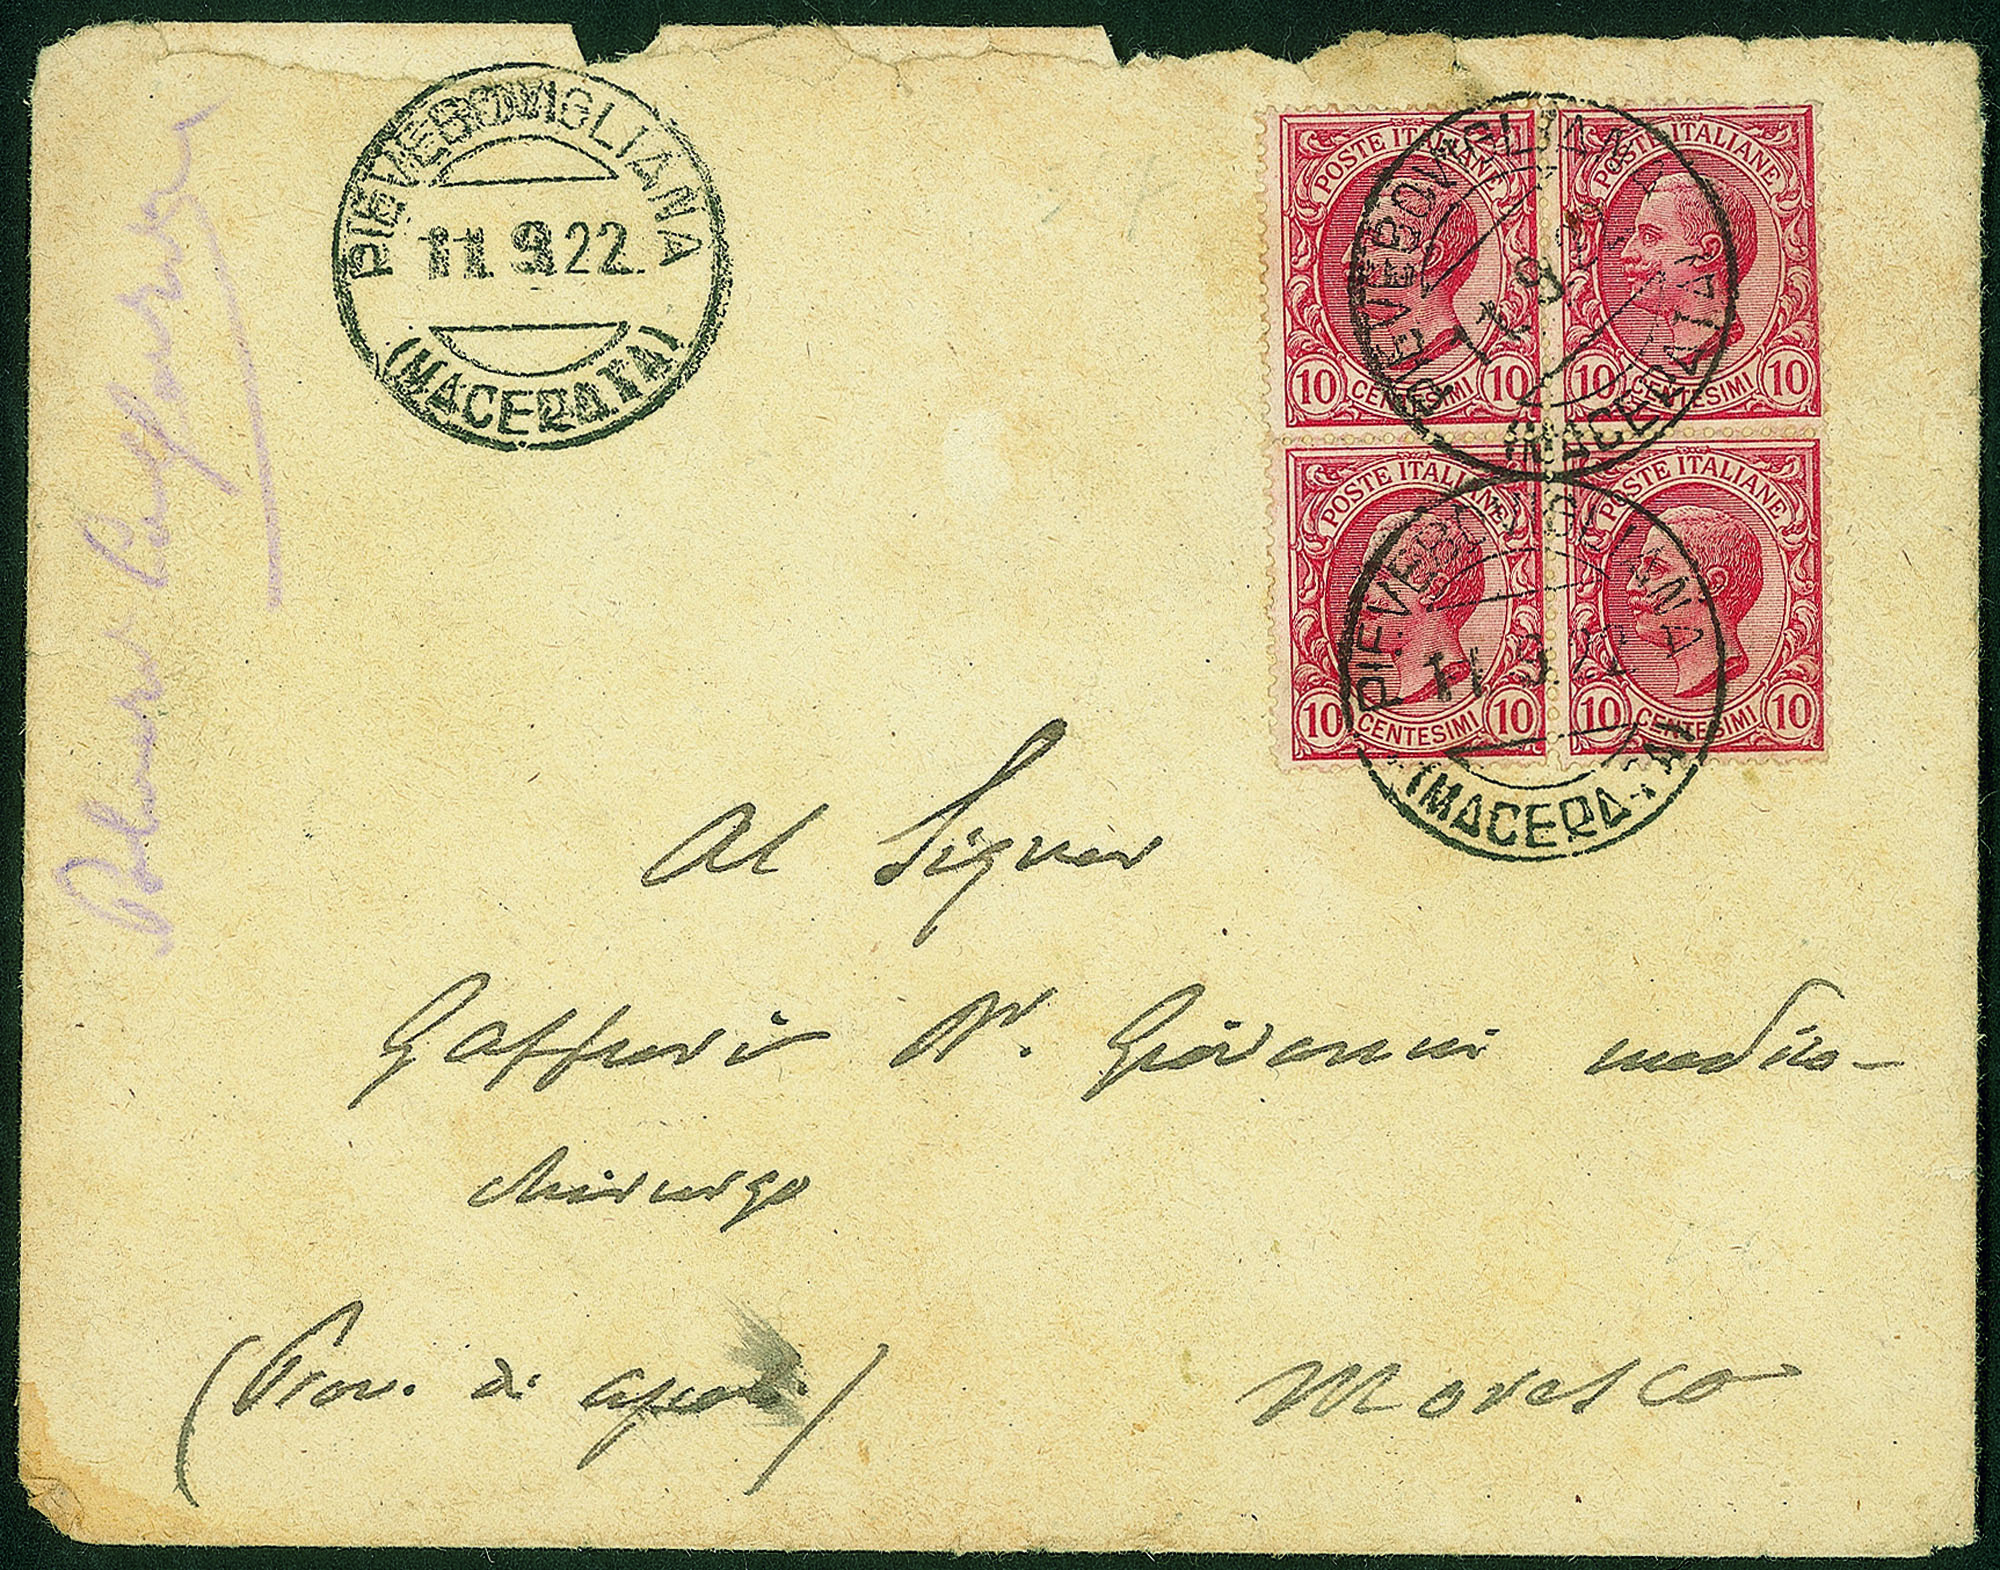 PIEVEBOVIGLIANA
11.9.22
(MACERATA)
POSTE ITALIANE
10 CENTESIMI 10
POSTE ITALIANE
10 CENTESIMI 10
POSTE ITALIANE
10 CENTESIMI 10
POSTE ITALIANE
10 CENTESIMI 10
PIEVEBOVIGLIANA
(MACERATA)
PIEVEBOVIGLIANA
11.9.22
(MACERATA)
Al Signor
Gaffuri Dr. Giovanni medico-
chirurgo
(Prov. di Ascoli)
Moresco